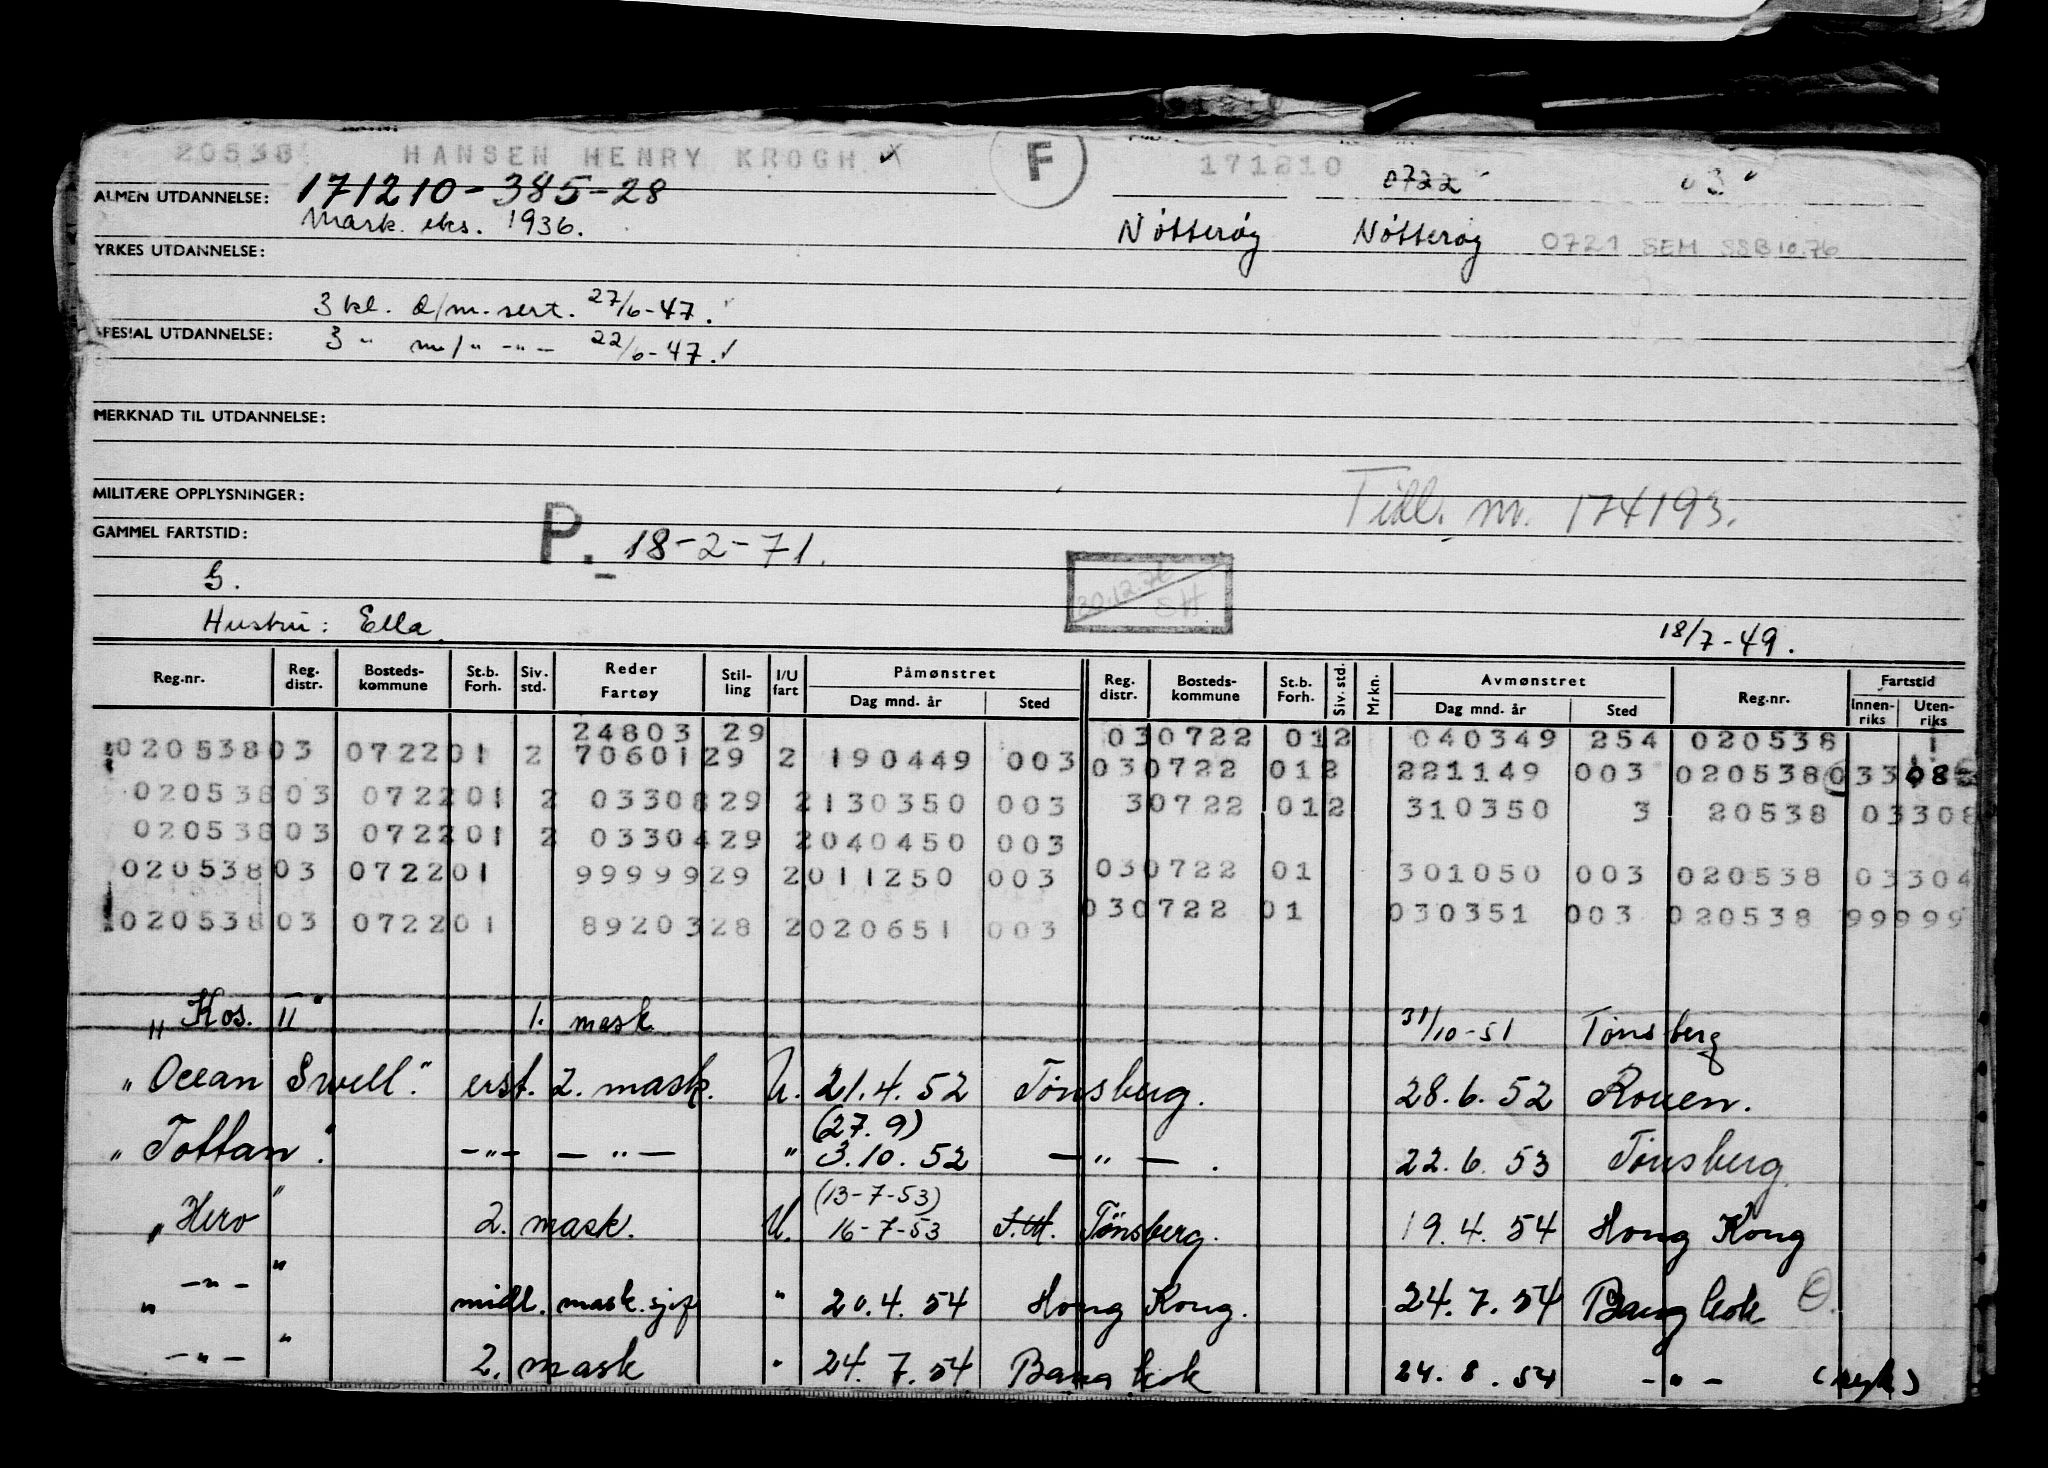 20538 HANSEN HENRY KROGH F 171210 0722 03
ALMEN UTDANNELSE: 171210-385-28
Mask. eks. 1936. Nøtterøy Nøtterøy 0721 SEM SSB 10.76
YRKES UTDANNELSE:
3 kl. D/m. sert. 27/6-47.
SPESIAL UTDANNELSE: 3 " m/" -"- 22/6-47.
MERKNAD TIL UTDANNELSE:
MILITÆRE OPPLYSNINGER: Tidl. nr. 174193.
GAMMEL FARTSTID: P. 18-2-71.
G. 30.12.76 SH
Hustru: Ella. 18/7-49.
Reg.nr. Reg. distr. Bosteds-kommune St.b. Forh. Siv. std. Reder Fartøy Stil-ling I/U fart Påmønstret Dag mnd. år Sted Reg. distr. Bosteds-kommune St.b. Forh. Siv. std. Mrkn. Avmønstret Dag mnd. år Sted Reg.nr. Fartstid Innen-riks Uten-riks
24803 29 030722 012 040349 254 020538
020538 03 0722 01 2 70601 29 2 190449 003 030722 012 221149 003 020538
020538 03 0722 01 2 03308 29 2 130350 003 30722 012 310350 3 20538 03308
020538 03 0722 01 2 03304 29 2 040450 003
020538 03 0722 01 99999 29 2 011250 003 030722 01 301050 003 020538 03304
020538 03 0722 01 89203 28 2 020651 003 030722 01 030351 003 020538 99999
"Kos. II" 1. mask. 31/10-51 Tønsberg
"Ocean Swell." erst. 2. mask. U. 21.4.52 Tønsberg. 28.6.52 Rouen.
(27.9)
"Tottan". -"- -"- " 3.10.52 -"-. 22.6.53 Tønsberg
(13-7-53)
"Hero" 2. mask. U. 16-7-53 Tønsberg. 19.4.54 Hong Kong
" -"- " midl. mask.sjef " 20.4.54 Hong Kong. 24.7.54 Bangkok
-"- " 2. mask " 24.7.54 Bangkok 24.8.54 -"- (syk)